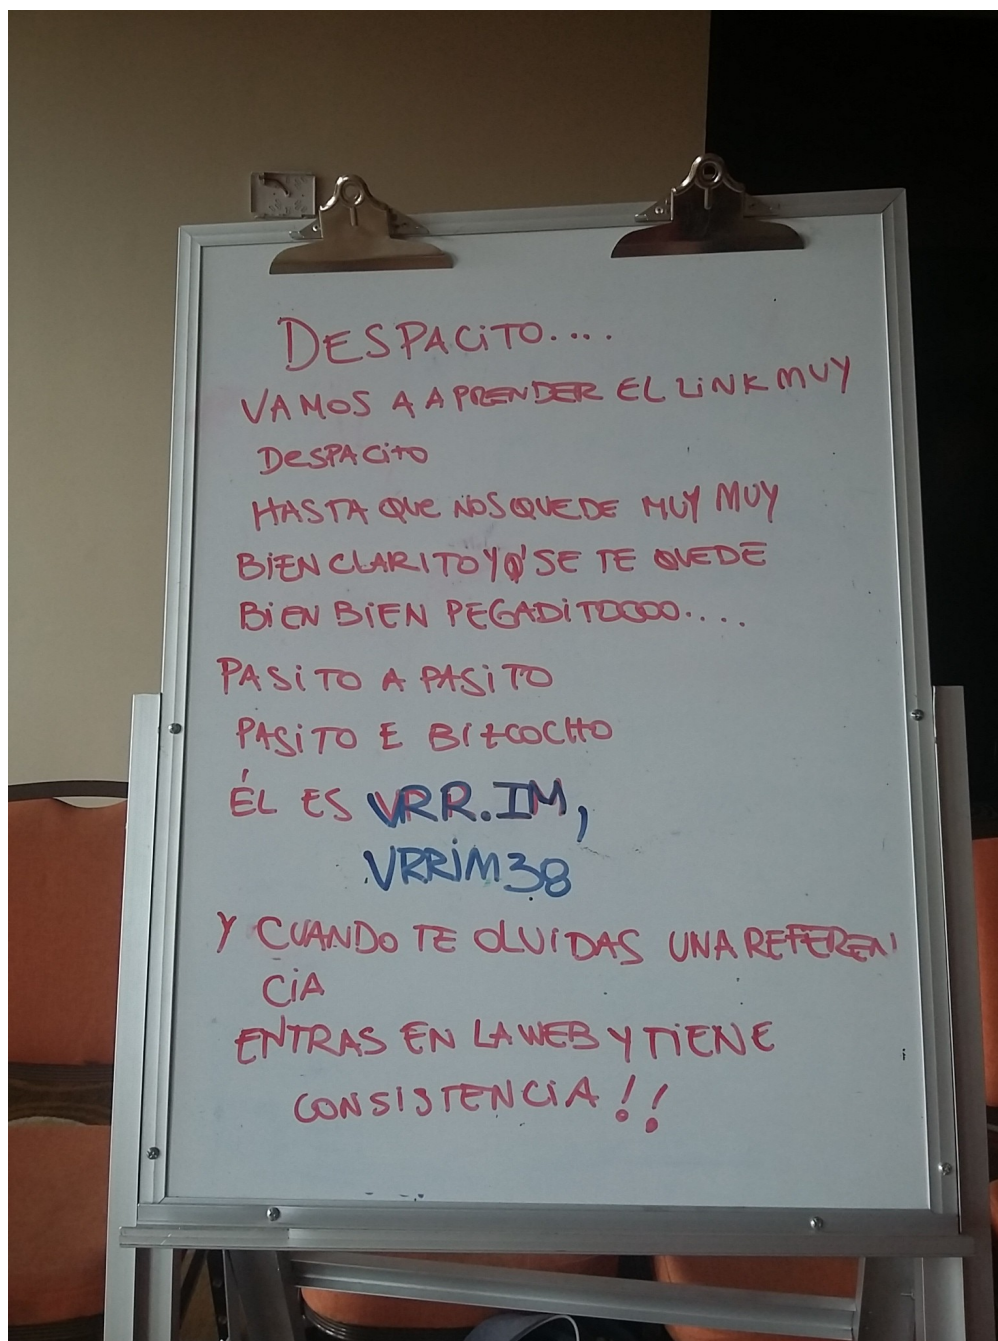 DESPACITO....
VAMOS A APRENDER EL LINK MUY
DESPACITO
HASTA QUE NOS QUEDE MUY MUY
BIEN CLARITO Y Q' SE TE QUEDE
BIEN BIEN PEGADITOOOO....
PASITO A PASITO
PASITO E BIZCOCHO
ÉL ES VRR.IM,
VRRIM38
Y CUANDO TE OLVIDAS UNA REFEREN
CIA
ENTRAS EN LA WEB Y TIENE
CONSISTENCIA!!